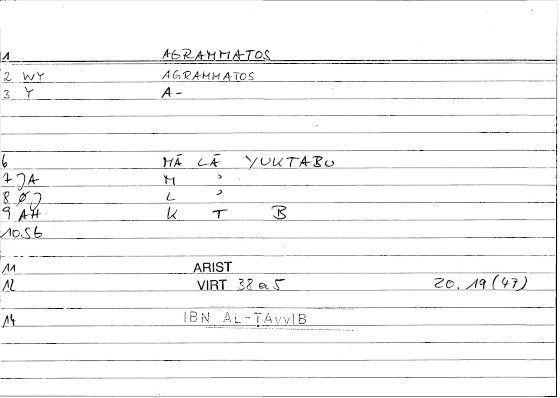 1 AGRAMMATOS
2 WY AGRAMMATOS
3 Y A-
6 MĀ LĀ YUKTABU
7 JA M ʾ
8 ØJ L ʾ
9 AH K T B
10.SB
11 ARIST
12 VIRT 38 a 5 20.19 (47)
14 IBN AL-ṬAYYIB